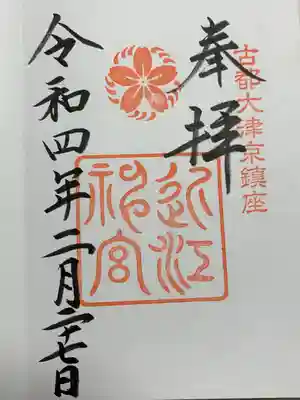 古都大津京鎮座
奉拝
近江
神宮
令和四年二月二十七日